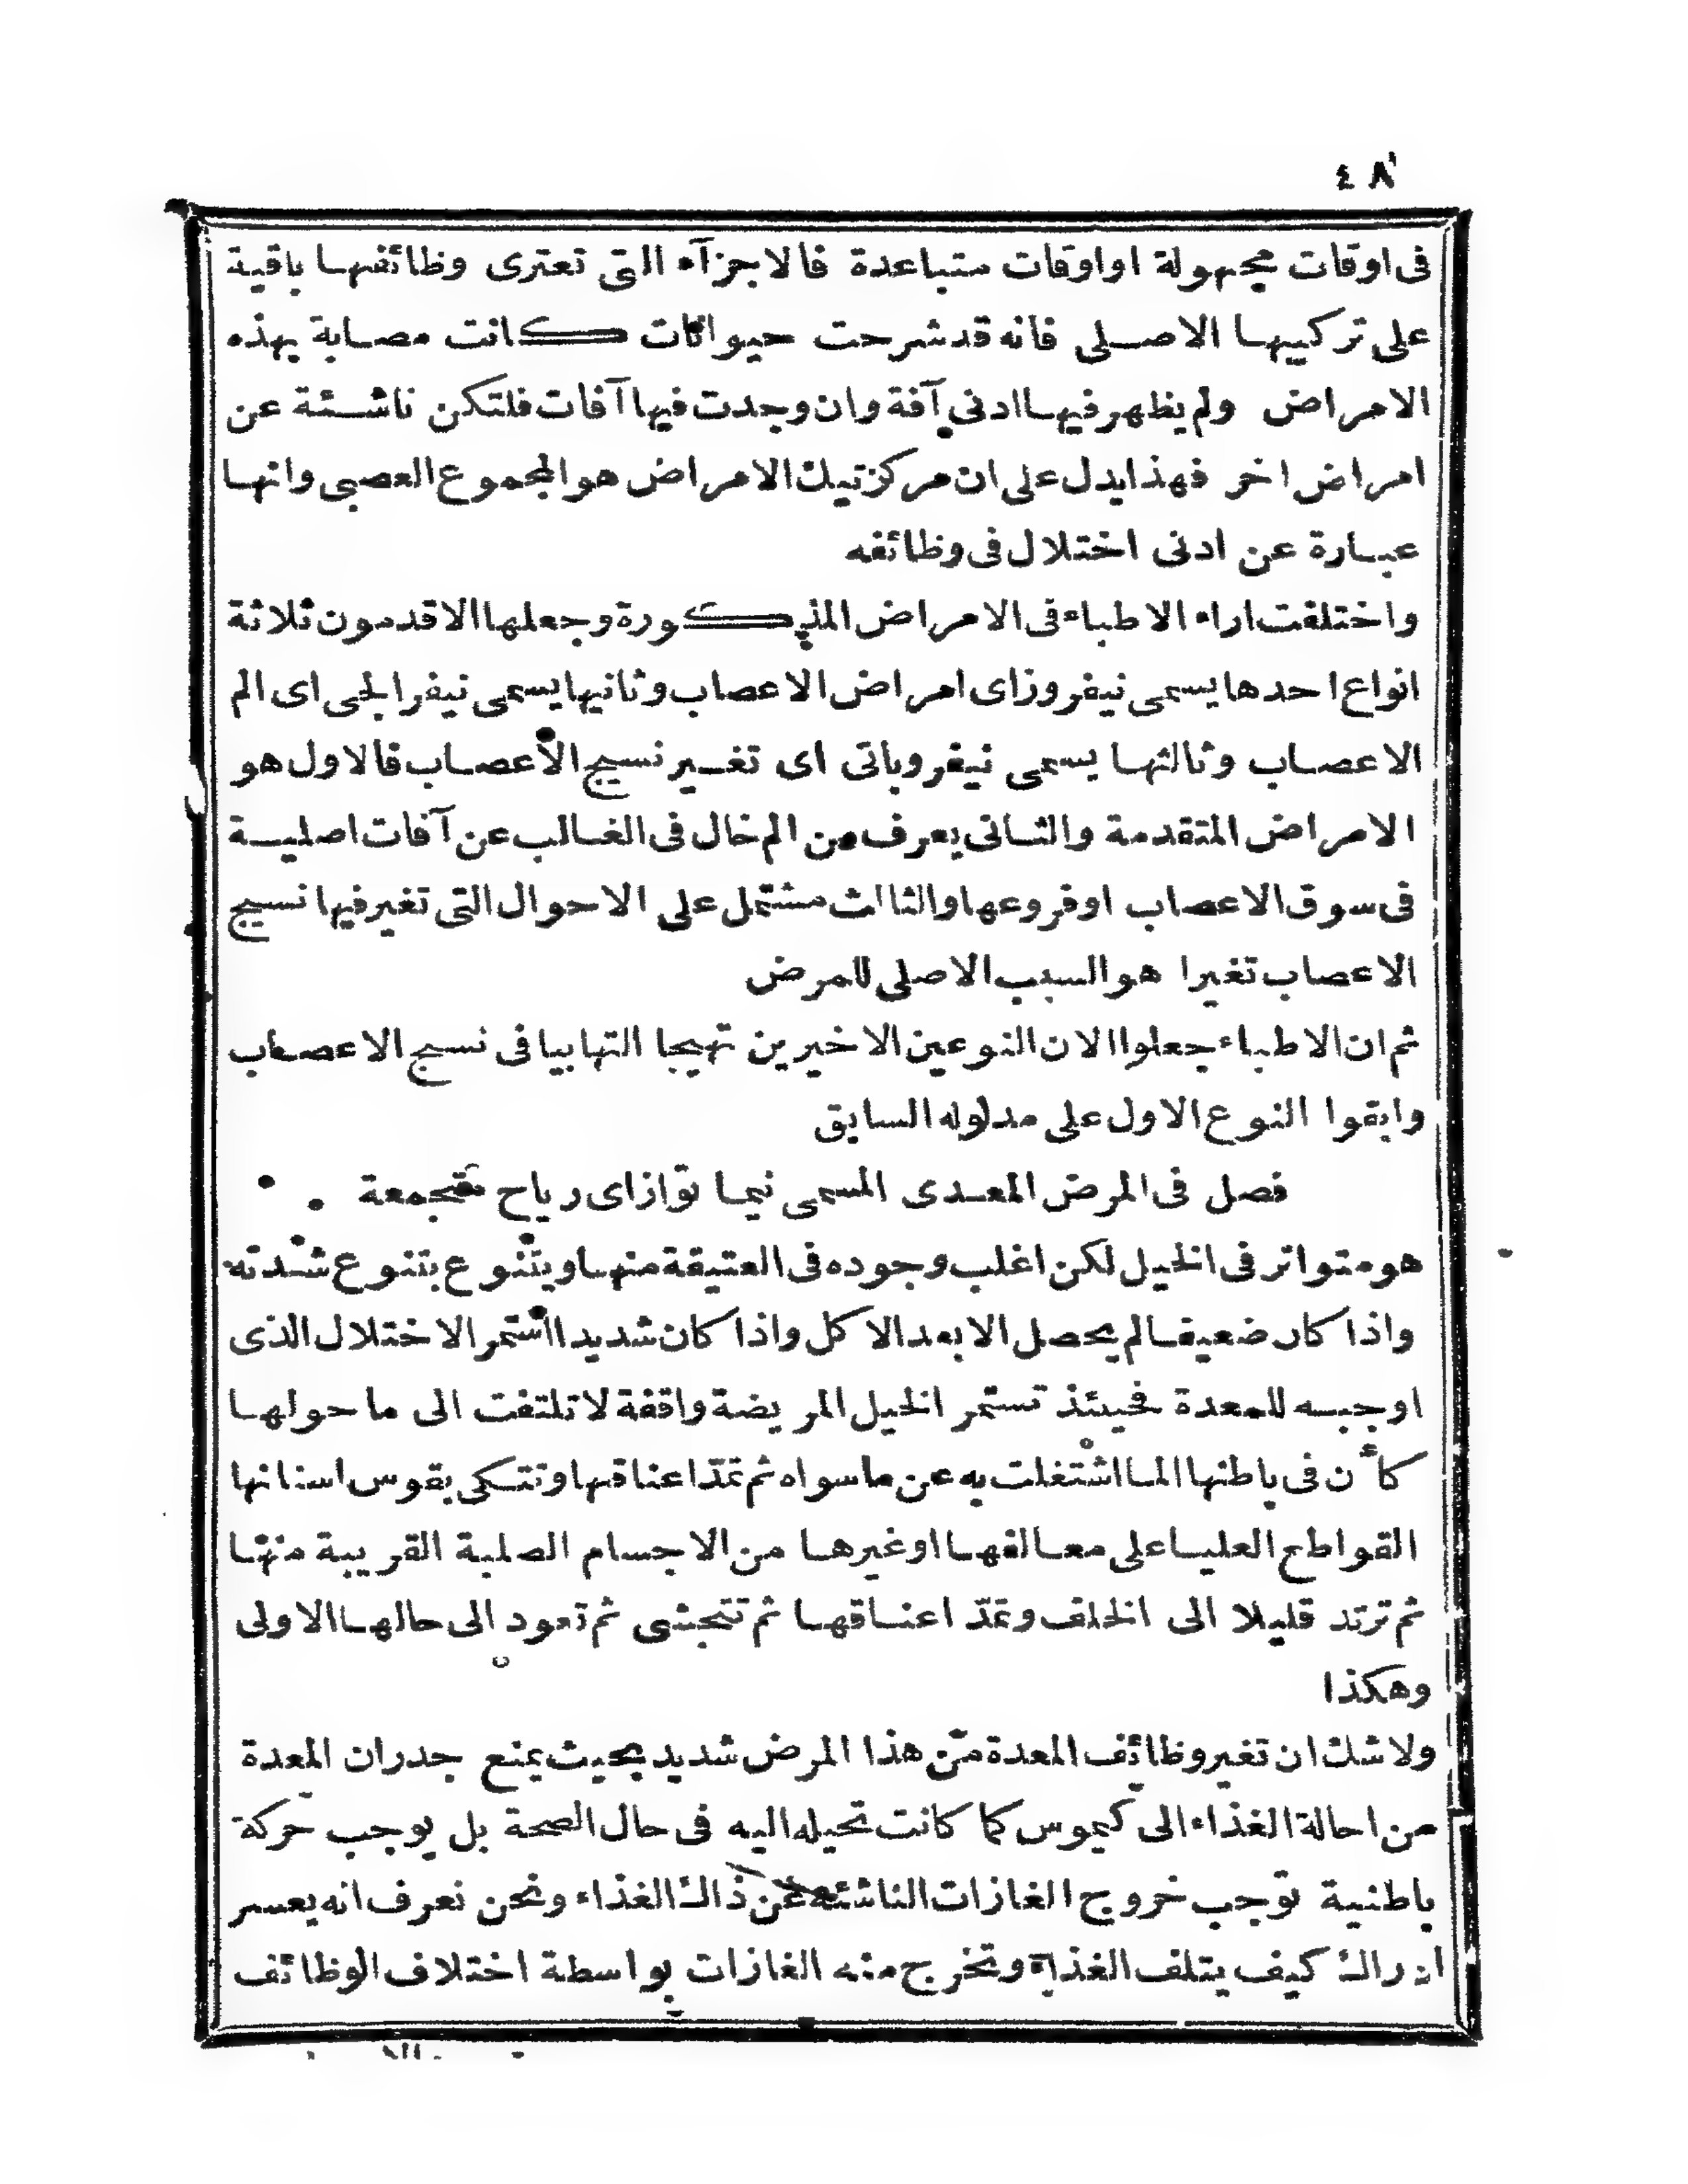 ٤٨
فى اوقات مجهولة او اوقات متباعدة فالاجزآء التى تعترى وظائفها باقية
على تركيبها الاصلى فانه قد شرحت حيوانات كانت مصابة بهذه
الامراض ولم يظهر فيها ادنى آفة وان وجدت فيها آفات فلتكن ناشئة عن
امراض اخر فهذا يدل على ان مركز تيك الامراض هو المجموع العصبى وانها
عبارة عن ادنى اختلال فى وظائفه
واختلفت اراء الاطباء فى الامراض المذكورة وجعلها الاقدمون ثلاثة
انواع احدها يسمى نيفروز اى امراض الاعصاب وثانيها يسمى نيفرالجى اى الم
الاعصاب وثالثها يسمى نيفروباتى اى تغير نسيج الاعصاب فالاول هو
الامراض المتقدمة والثانى يعرف من الم خال فى الغالب عن آفات اصلية
فى سوق الاعصاب او فروعها والثالث مشتمل على الاحوال التى تغير فيها نسيج
الاعصاب تغيرا هو السبب الاصلى للمرض
ثم ان الاطباء جعلوا الان النوعين الاخيرين تهيجا التهابيا فى نسيج الاعصاب
وابقوا النوع الاول على مدلوله السابق
فصل فى المرض المعدى المسمى نيما تواز اى رياح
هو متواتر فى الخيل لكن اغلب وجوده فى العتيقة منها ويتنوع بتنوع شدته
واذا كان ضعيفا لم يحصل الا بعد الاكل واذا كان شديدا استمر الاختلال الذى
اوجبه للمعدة فحينئذ تستمر الخيل المريضة واقفة لا تلتفت الى ما حولها
كأن فى باطنها الما اشتغلت به عن ما سواه ثم تمدّ اعناقها وتتكى بقوس اسنانها
القواطع العليا على معالفها او غيرها من الاجسام الصلبة القريبة منها
ثم ترتد قليلا الى الخلف وتمدّ اعناقها ثم تتجشى ثم تعود الى حالها الاولى
وهكذا
ولا شك ان تغير وظائف المعدة من هذا المرض شديد بحيث يمنع جدران المعدة
من احالة الغذاء الى كيموس كما كانت تحيله اليه فى حال الصحة بل يوجب حركة
باطنية توجب خروج الغازات الناشئة عن ذاك الغذاء ونحن نعرف انه يعسر
ادراك كيف يتلف الغذاء وتخرج منه الغازات بواسطة اختلاف الوظائف